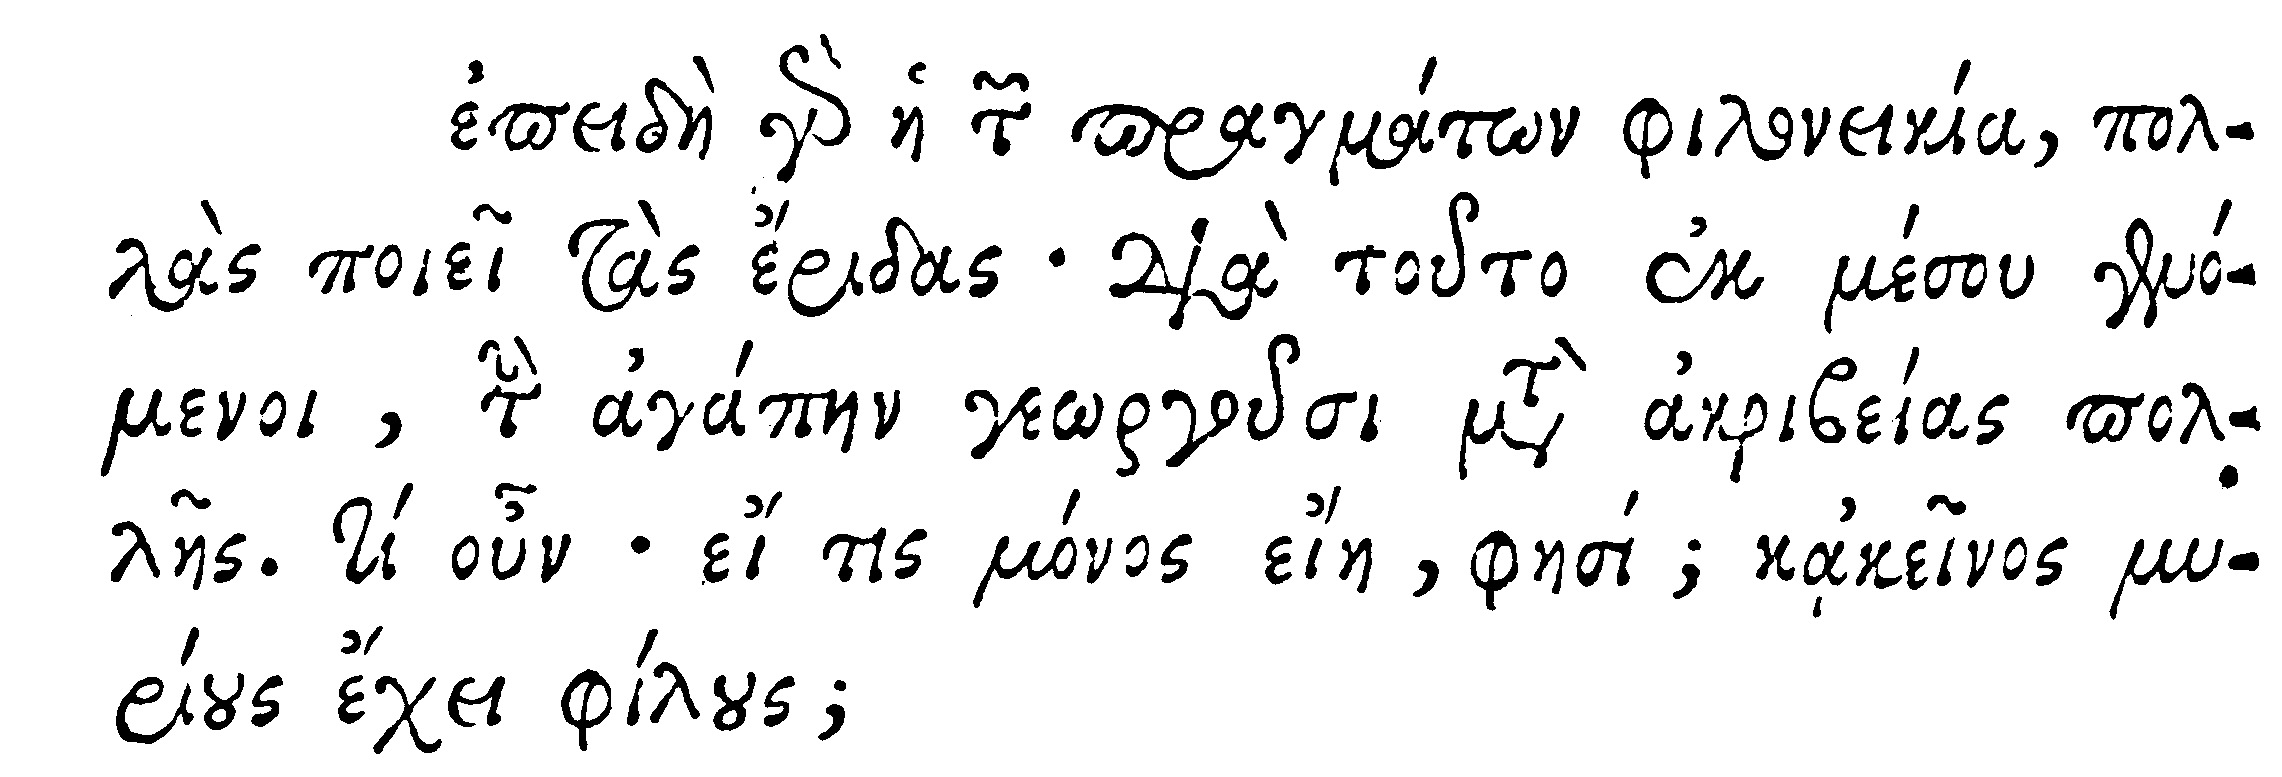 ἐπειδὴ γὰρ ἡ τῶν πραγμάτων φιλονεικία, πολ-
λὰς ποιεῖ τὰς ἔριδας · διὰ τοῦτο ἐκ μέσου γενό-
μενοι, τὴν ἀγάπην γεωργοῦσι μετὰ ἀκριβείας πολ-
λῆς. τί οὖν · εἴ τις μόνος εἴη, φησί; κἀκεῖνος μυ-
ρίους ἔχει φίλους;